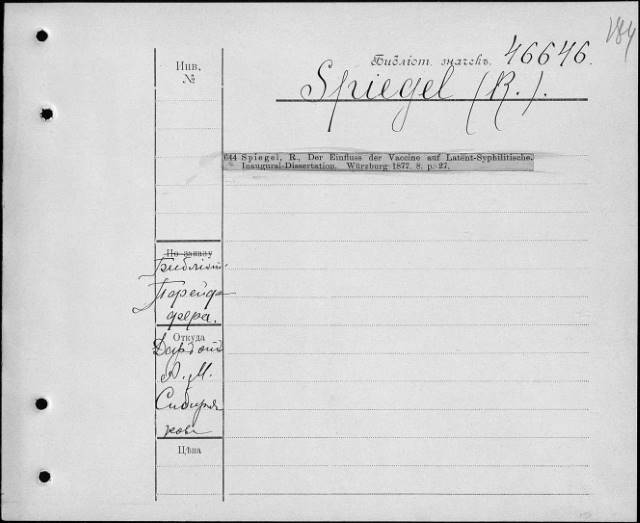 Библіот. значекъ. 46646.
Инв.
№
Spiegel (R.).
644 Spiegel, R., Der Einfluss der Vaccine auf Latent-Syphilitische.
Inaugural-Dissertation. Würzburg 1877. 8. p. 27.
По заказу
Библіот.
Порейде
фера.
Откуда
А. М.
Сибиря
кова
Цѣна